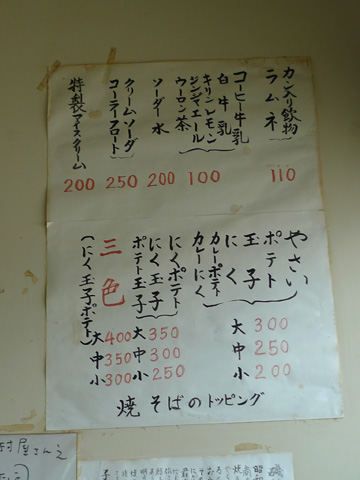 カン入り飲物
ラムネ
110
コーヒー牛乳
白牛乳
キリンレモン
ジンジャエール
ウーロン茶
100
ソーダー水
200
クリームソーダ
コーラーフロート
250
特製アイスクリーム
200
やさい
ポテト
玉子
にく
カレーポテト
カレーにく
大 300
中 250
小 200
にくポテト
にく玉子
ポテト玉子
大 350
中 300
小 250
三色
(にく玉子ポテト)
大 400
中 350
小 300
焼そばのトッピング
村屋さんえ